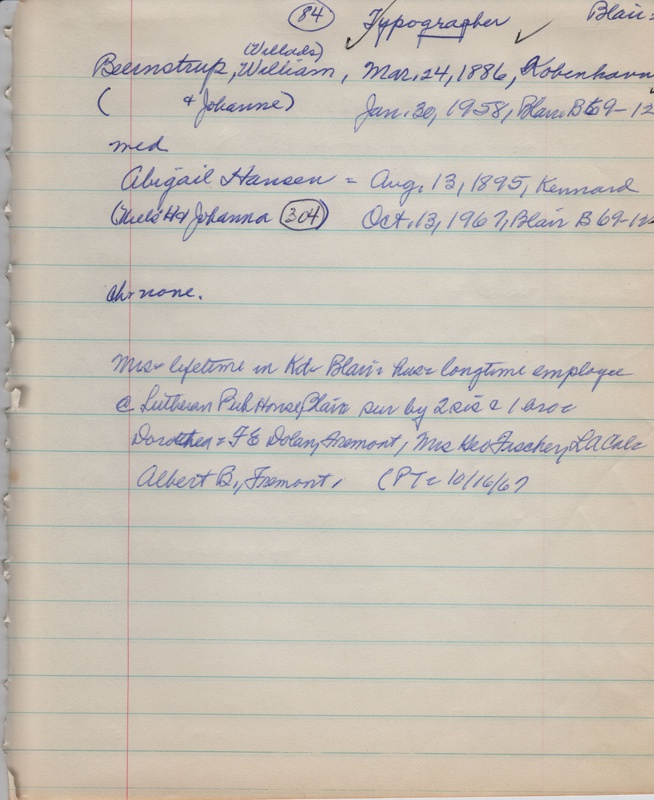 84 Typographer Blair
(Willads)
Beernstrup, William, Mar. 24, 1886, Kobenhavn
( & Johanne) Jan. 30, 1958, Blair B 69-12
med
Abigail Hansen = Aug. 13, 1895, Kennard
(Niels H & Johanna 304) Oct. 13, 1967, Blair B 69-12
ch - none.
Mrs - lifetime in Kd - Blair = hus = longtime employee
@ Lutheran Pub House, Blair sur by 2 sis & 1 bro =
Dorothea = F E Dolan, Fremont, Mrs Fischer, LA Cal =
Albert B., Fremont. (PT = 10/16/67